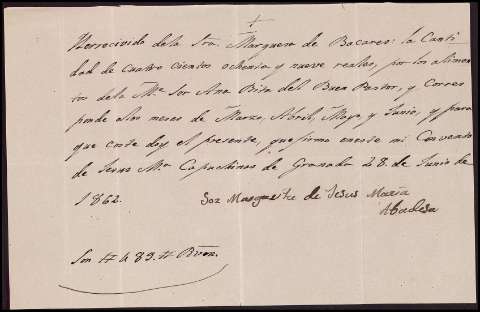 He recivido dela Sra. Marquesa de Bacares: la Canti
dad de Cuatro cientos ochenta y nueve reales, por los alimen
tos dela Me. Sor Ana Rita del Buen Pastor, y Corres
ponde alos meses de Marzo, Abril, Mayo y Junio, y para
que coste doy el presente, que firmo eneste mi Convento
de Jesus Ma. Capuchinas de Granada 28. de Junio de
1862.
Sor Margarita de Jesus Maria
Abadesa
Son # 489. # Rvon.